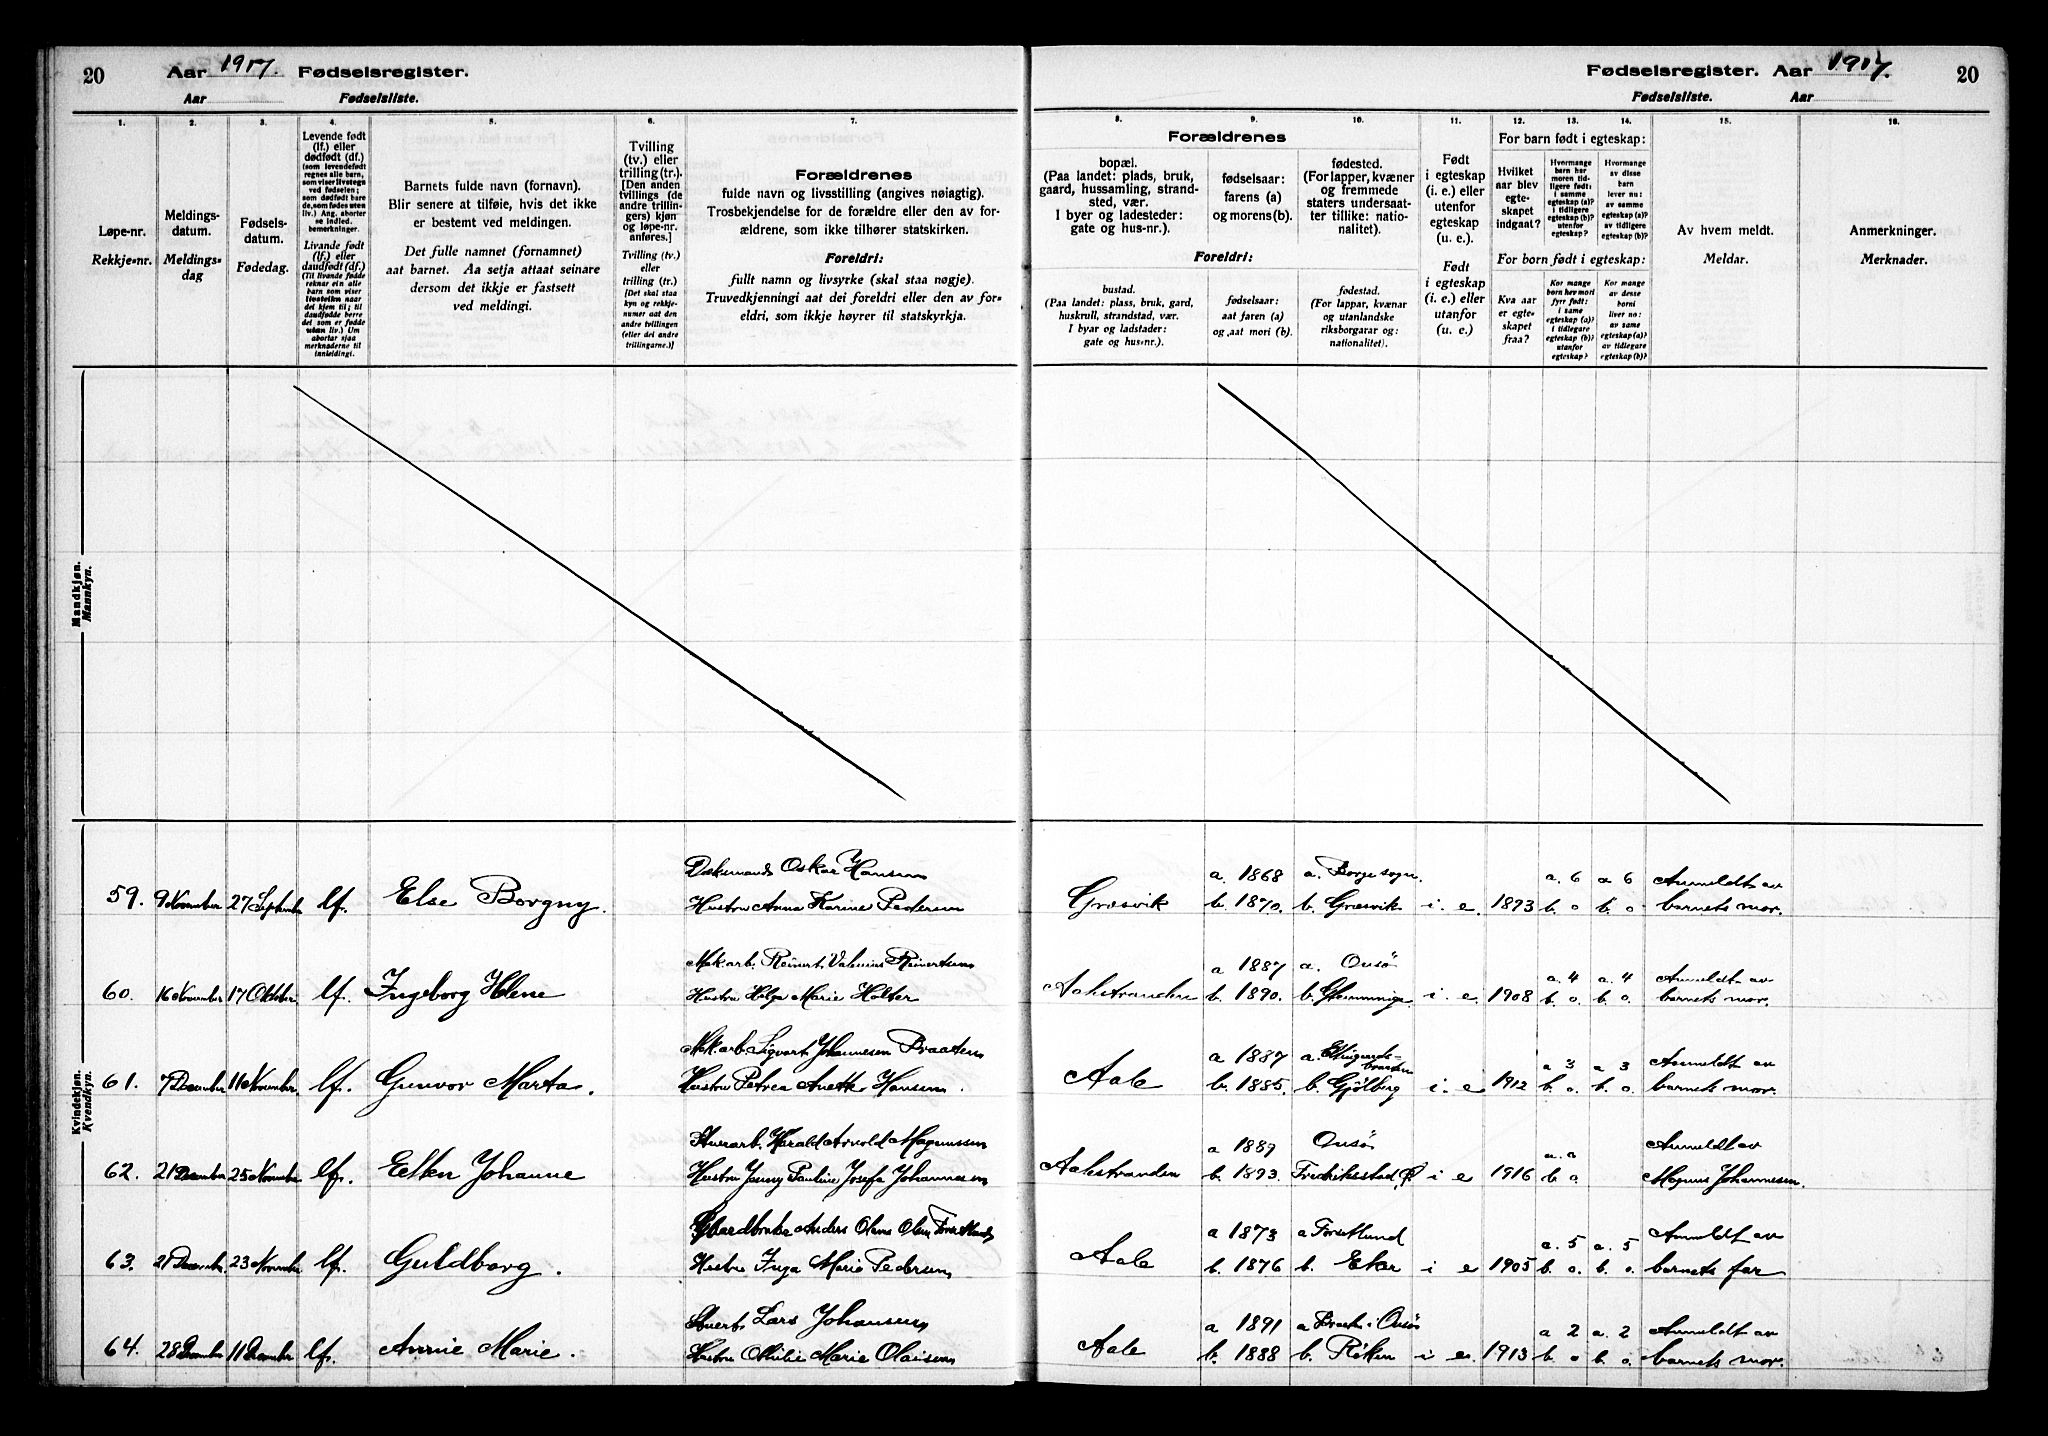 20 Aar 1917. Fødselsregister.
Aar Fødselsliste.
Fødselsregister. Aar 1917. 20
Fødselsliste. Aar
1. 2. 3. 4. 5. 6. 7.
Løpe-nr.
Rekkje-nr.
Meldings-
datum.
Meldings-
dag
Fødsels-
datum.
Fødedag.
Levende født
(lf.) eller
dødfødt (df.)
(som levendefødt
regnes alle barn,
som viser livstegn
ved fødselen;
som dødfødt bare
de, som fødes uten
liv.) Ang. aborter
se indled.
bemerkninger.
Livande født
(lf.) eller
daudfødt (df.)
(Til livande fødde
reknar ein alle
barn som viser
livsteikn naar
det kjem til; til
daudfødde berre
dei som er fødde
utan liv.) Um
abortar sjaa
merknaderne til
innleidingi.
Barnets fulde navn (fornavn).
Blir senere at tilføie, hvis det ikke
er bestemt ved meldingen.
Det fulle namnet (fornamnet)
aat barnet. Aa setja attaat seinare
dersom det ikkje er fastsett
ved meldingi.
Tvilling
(tv.) eller
trilling (tr.).
[Den anden
tvillings (de
andre trillin-
gers) kjøn
og løpe-nr.
anføres.]
Tvilling (tv.)
eller
trilling (tr.)
[Det skal staa
kyn og rekkje-
numer aat den
andre tvillingen
(eller dei andre
trillingarne.)]
Forældrenes
fulde navn og livsstilling (angives nøiagtig).
Trosbekjendelse for de forældre eller den av for-
ældrene, som ikke tilhører statskirken.
Foreldri:
fullt namn og livsyrke (skal staa nøgje).
Truvedkjenningi aat dei foreldri eller den av for-
eldri, som ikkje høyrer til statskyrkja.
8. 9. 10. 11. 12. 13. 14. 15. 16.
Forældrenes
bopæl.
(Paa landet: plads, bruk,
gaard, hussamling, strand-
sted, vær.
I byer og ladesteder:
gate og hus-nr.).
fødselsaar:
farens (a)
og morens (b).
fødested.
(For lapper, kvæner
og fremmede
staters undersaat-
ter tillike: natio-
nalitet).
Foreldri:
bustad.
(Paa landet: plass, bruk, gard,
huskrull, strandstad, vær.
I byar og ladstader:
gate og hus-nr.).
fødselsaar:
aat faren (a)
og aat mori (b).
fødestad.
(For lappar, kvænar
og utanlandske
riksborgarar og:
nationalitet).
Født
i egteskap
(i. e.) eller
utenfor
egteskap
(u. e.).
Født
i egteskap
(i. e.) eller
utanfor
(u. e.)
For barn født i egteskap:
Hvilket
aar blev
egte-
skapet
indgaat?
Hvormange
barn har
moren tid-
ligere født:
i samme
egteskap (a)?
i tidligere
egteskap (b)?
utenfor
egteskap?
Hvormange
av disse
barn
lever nu:
av samme
egteskap (a)?
av tidligere
egteskap (b)?
For barn født i egteskap:
Kva aar
er egte-
skapet
fraa?
Kor mange
born hev mori
fyrr født:
i same
egteskap (a)?
i tidlegare
egteskap (b)?
utanfor
egteskap?
Kor mange
av desse
borni
liver no:
av same
egteskap (a)?
av tidlegare
egteskap (b)?
Av hvem meldt.
Meldar.
Anmerkninger.
Merknader.
Mandkjøn.
Mannkyn.
Kvindekjøn.
Kvendkyn.
Oskar Hansen a. 1868 a. Borge sogn. a. 6 a 6 Anmeldt av
59. 9 November 27 September lf. Else Borgny. Hustru Anna Karine Pedersen Græsvik b. 1870. b. Græsvik i. e. 1893 b. 0 b. 0 barnets mor.
Mek. arb. Reinert Valenius Reinertsen a 1887 a. Onsø a. 4 a. 4 Anmeldt av
60. 16 November 17 Oktober lf. Ingeborg Helene Hustru Helga Marie Holter Aalestranden b. 1890. b. Glemminge i. e. 1908 b. 0. b. 0. barnets mor.
Mek. arb. Sigvart Johannesen Braaten a 1887 a. a 3 a 3 Anmeldt av
61. 7 December 11 November. lf. Gunvor Marta. Hustru Petrea Anette Hansen. Aale b. 1885. b. Gjølberg i. e 1912 b. 0. b. 0. barnets mor.
Harald Arnold Magnussen a 1889 Onsø Anmeldt av
62. 21 December 25 November lf. Ellen Johanne Hustru Jenny Pauline Josefa Johannesen Aalestranden b. 1893. Fredriksstad i e 1916 b 0. Magnus Johannesen.
Gaardbruker Anders Olens Olsen a 1873 a a. 5 a. 5 Anmeldt av
63. 21 December 23 November lf. Guldborg. Hustru Inga Marie Pedersen Aale b. 1876 b. Eker i e 1905 b. 0. b. 0. barnets far
Lars Johansen a 1891 a Onsø a 2 a. 2 Anmeldt av
64. 28 December 11 December lf. Annie Marie. Hustru Othilie Marie Olaisen Aale b. 1888 b. Røken i e. 1913 b. 0 b. 0. barnets mor.